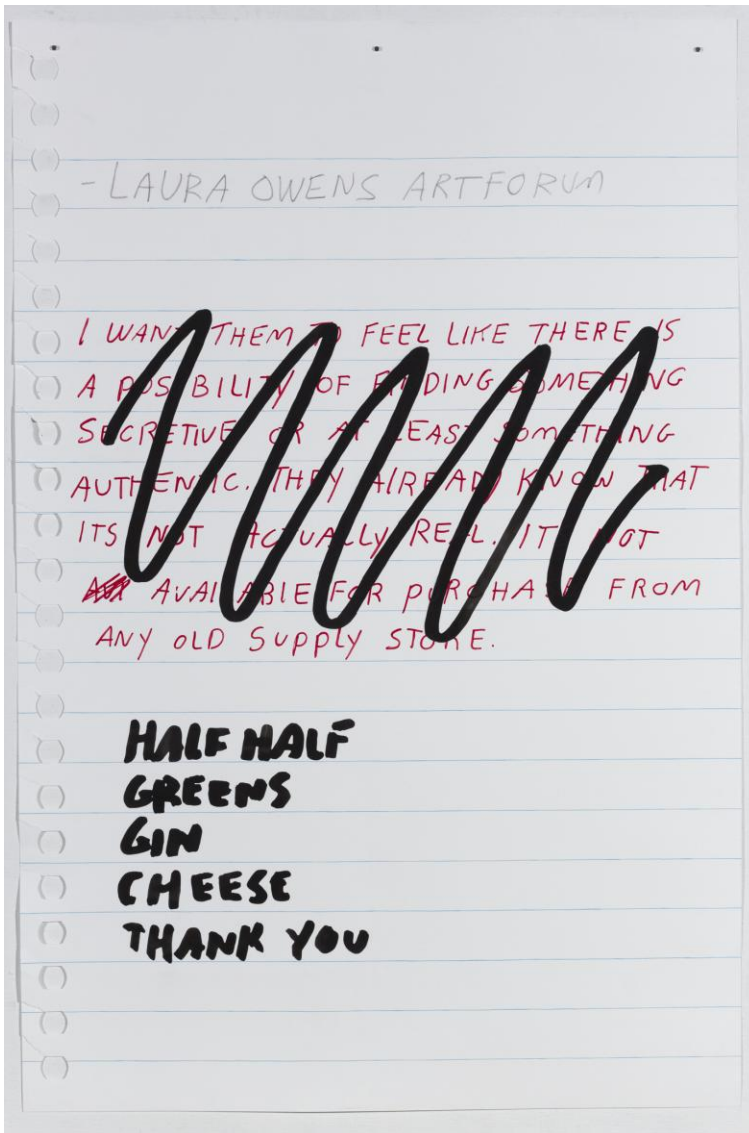 - LAURA OWENS ARTFORUM
I WANT THEM TO FEEL LIKE THERE IS
A POSSIBILITY OF FINDING SOMETHING
SECRETIVE OR AT LEAST SOMETHING
AUTHENTIC. THEY ALREADY KNOW THAT
ITS NOT ACTUALLY REAL. ITS NOT
AVAILABLE FOR PURCHASE FROM
ANY OLD SUPPLY STORE.
HALF HALF
GREENS
GIN
CHEESE
THANK YOU